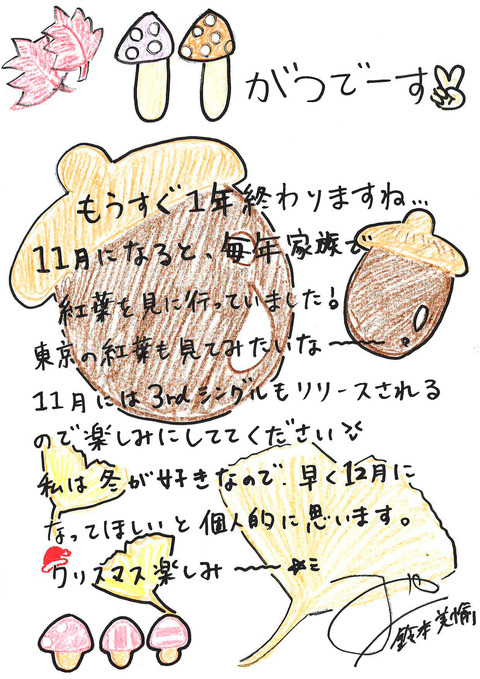 がつでーす
もうすぐ1年終わりますね…
11月になると、毎年家族で
紅葉を見に行っていました!
東京の紅葉も見てみたいな〜〜。
11月には3rdシングルもリリースされる
ので楽しみにしててください
私は冬が好きなので、早く12月に
なってほしいと個人的に思います。
クリスマス楽しみ〜〜
鈴木美愉